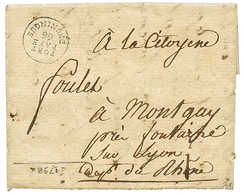 à la Citoyene
foulet
à Montguy
près fontaine
Sur Lyon
Dept. du Rhône
1798